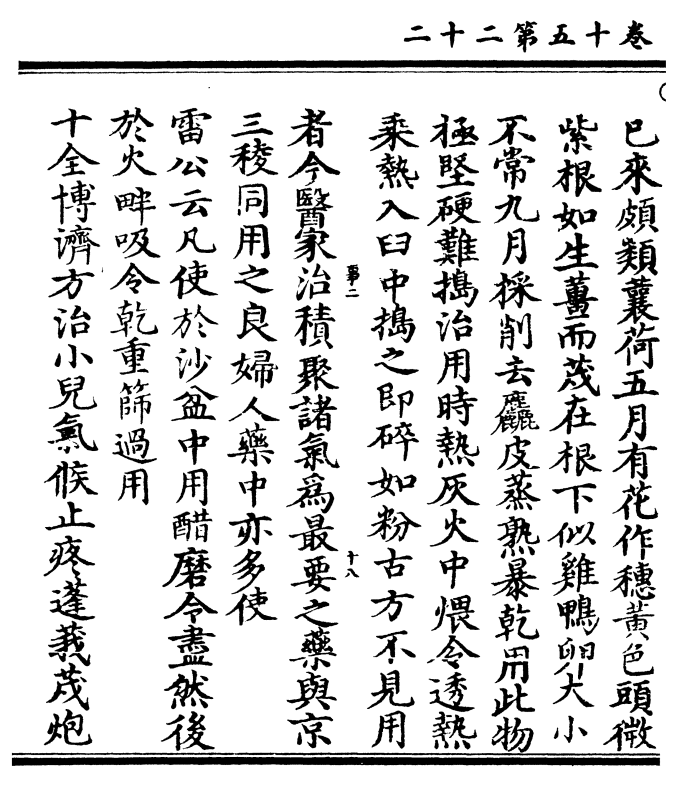 卷十五第二十二
已來頗類蘘荷五月有花作穗黃色頭微
紫根如生薑而茂在根下似雞鴨卵大小
不常九月採削去麤皮蒸熟暴乾用此物
極堅硬難擣治用時熱灰火中煨令透熱
乘熱入臼中擣之即碎如粉古方不見用
者今醫家治積聚諸氣爲最要之藥與京
三稜同用之良婦人藥中亦多使
雷公云凡使於沙盆中用醋磨令盡然後
於火畔吸令乾重篩過用
十全博濟方治小兒氣候止疼蓬莪茂炮